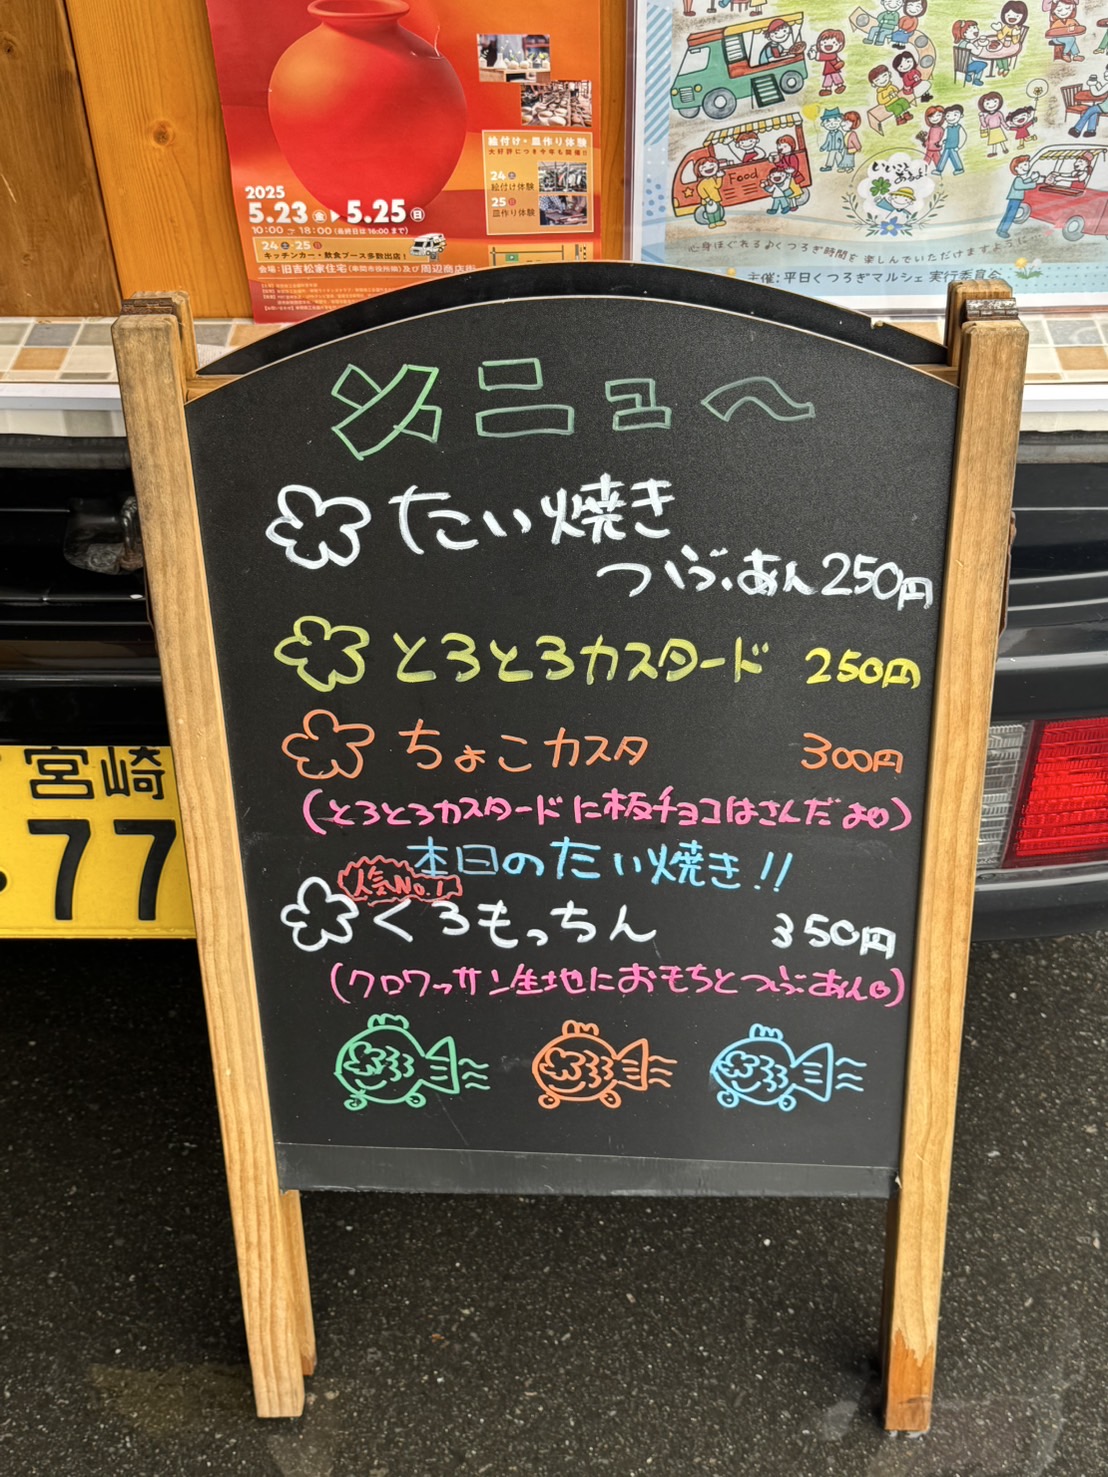 絵付け・皿作り体験
大好評につき今年も開催!!
24土
絵付け体験
25日
皿作り体験
2025
5.23金▶5.25日
10:00→18:00(最終日は16:00まで)
24土25日
キッチンカー・飲食ブース多数出店!
会場:旧吉松家住宅(串間市役所横)及び周辺商店街
Food
心身ほぐれるよくつろぎ時間を楽しんでいただけますように
主催:平日くつろぎマルシェ実行委員会
メニュー
たい焼き
つぶあん250円
とろとろカスタード 250円
ちょこカスタ 300円
(とろとろカスタードに板チョコはさんだよ)
本日のたい焼き!!
人気No.1
くろもっちん 350円
(クロワッサン生地におもちとつぶあん)
宮崎
77